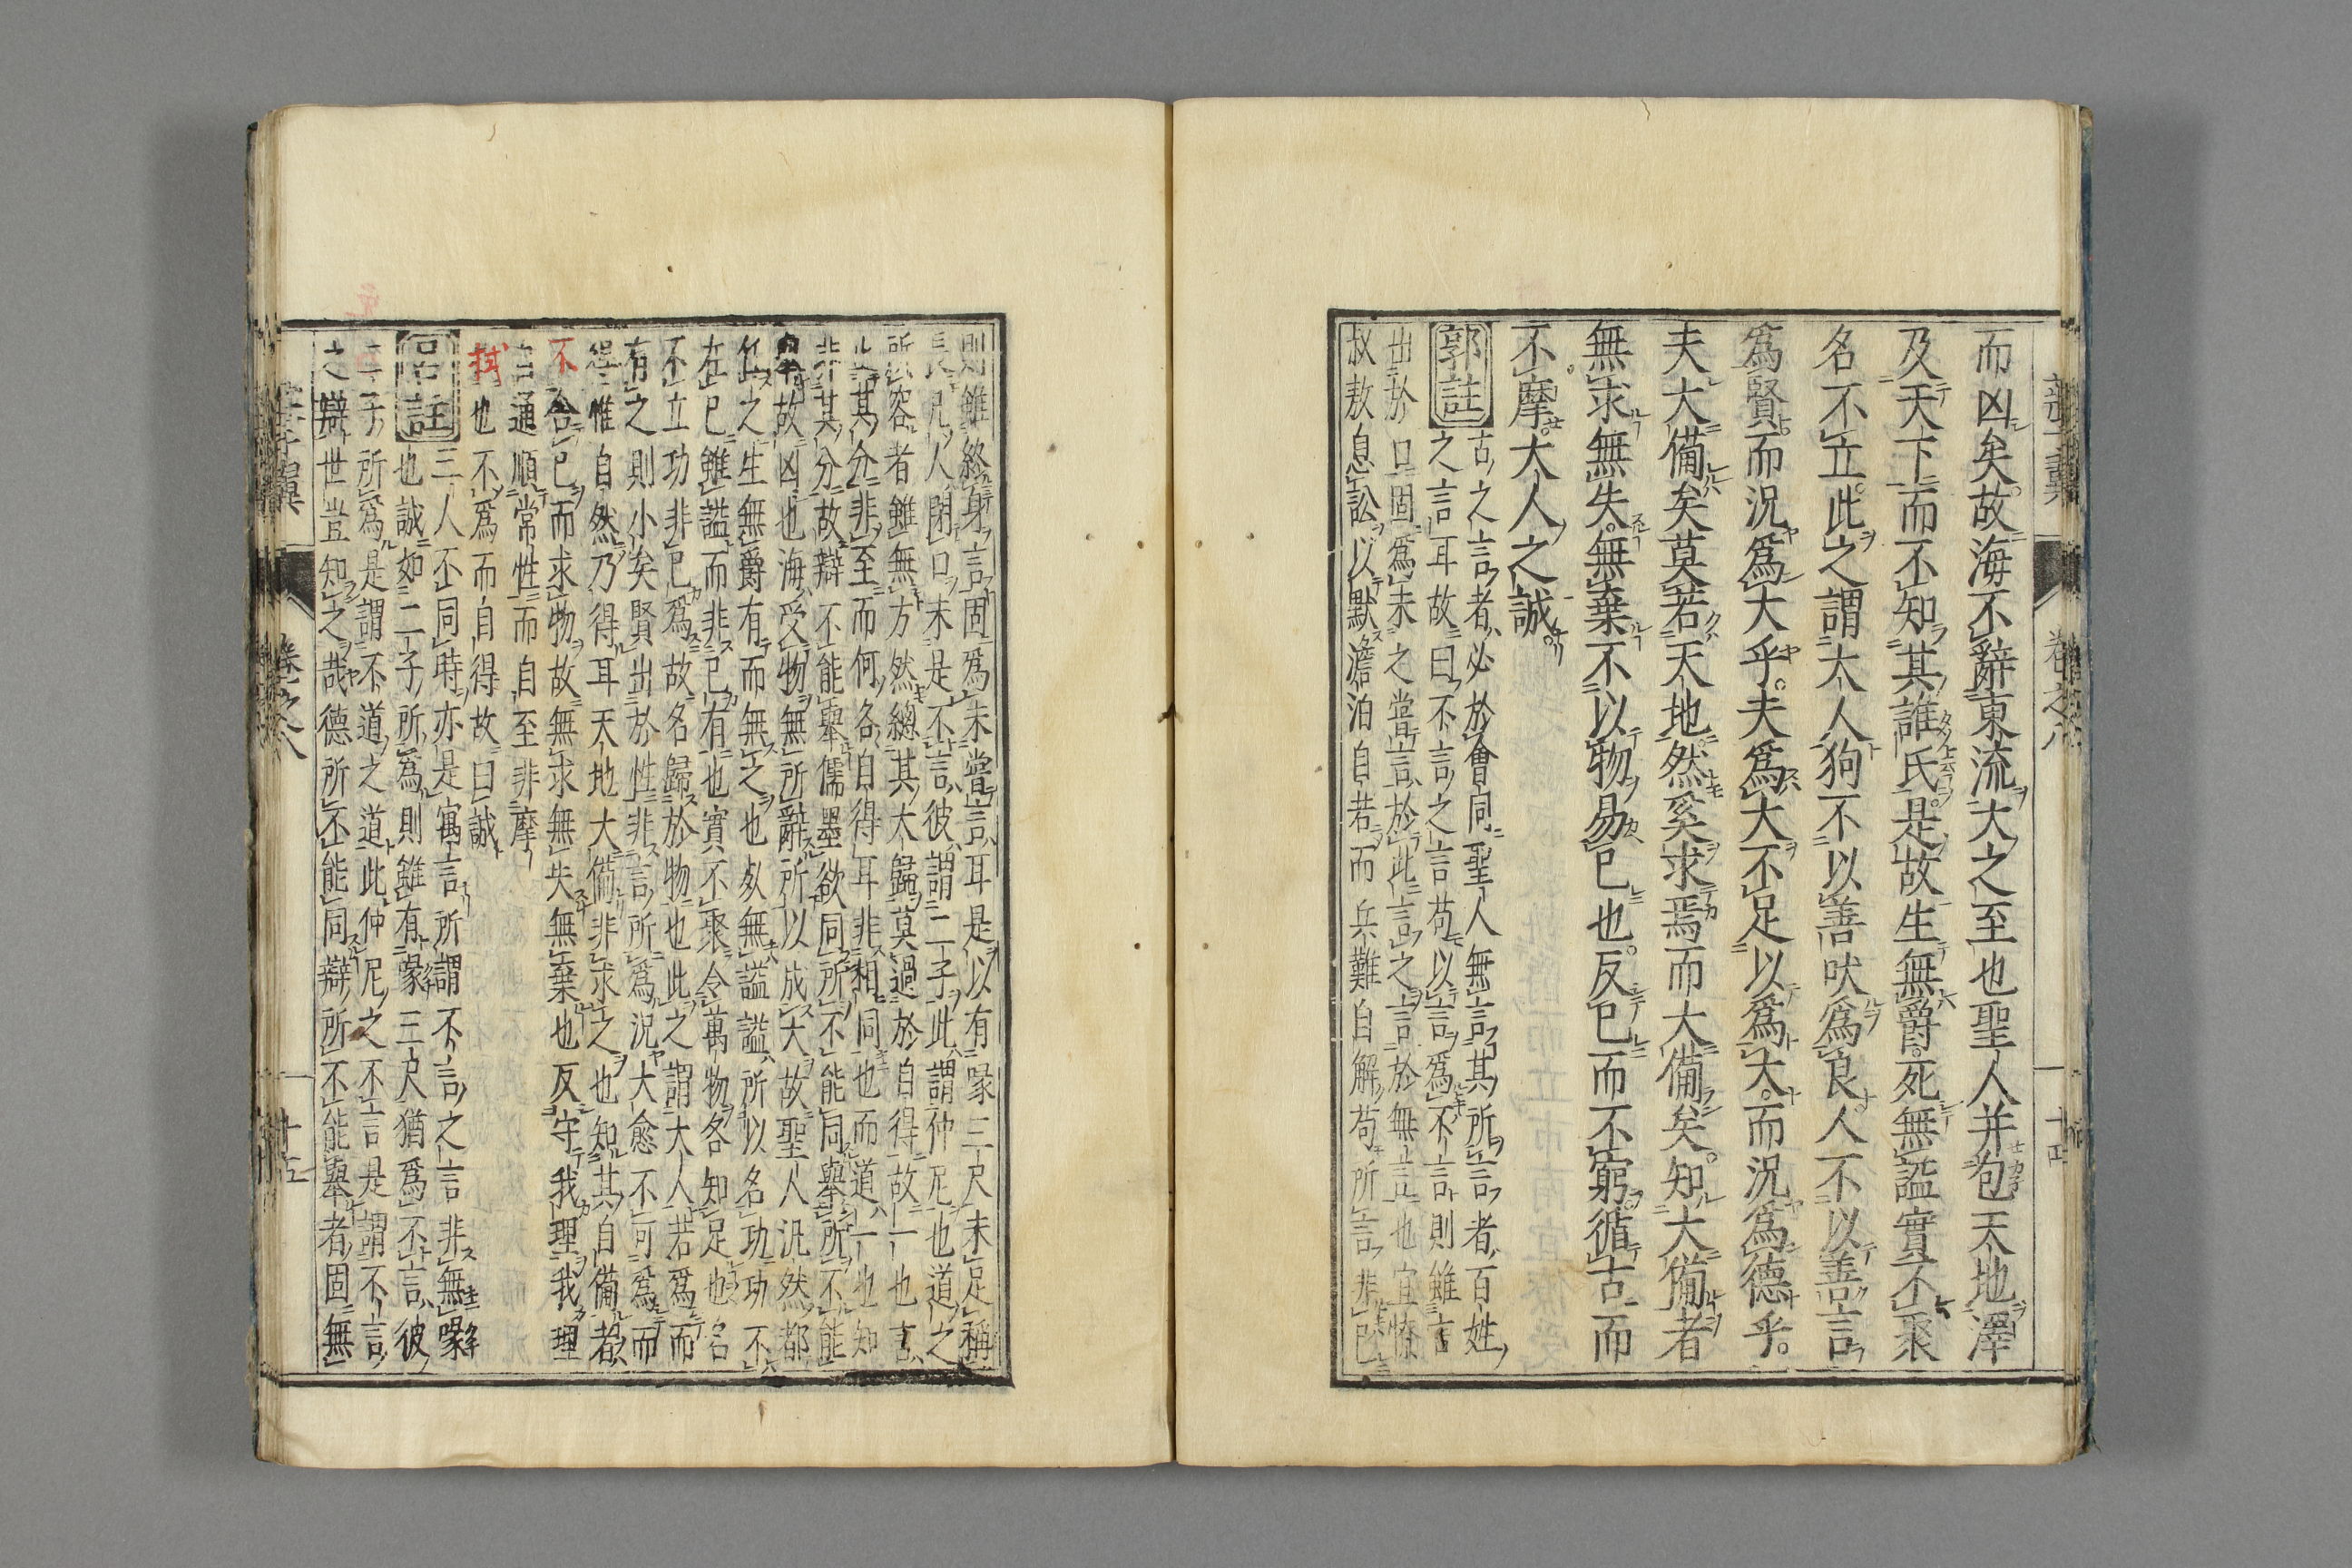 而凶矣故海不辭東流大之至也聖人并包天地澤
及天下而不知其誰氏是故生無爵死無謚實不聚
名不立此之謂大人狗不以善吠爲良人不以善言
爲賢而況爲大乎夫爲大不足以爲大而況爲德乎
夫大備矣莫若天地然奚求焉而大備矣知大備者
無求無失無棄不以物易己也反己而不窮循古而
不摩大人之誠
郭註
古之言者必於會同聖人無言其所言者百姓
之言耳故曰不言之言苟以言爲不言則雖言
出於口固爲未之嘗言於此言之言於無言也宜僚
叔敖息訟以默澹泊自若而兵難自解苟所言非己
卷之八
則雖終身言固爲未嘗言耳是以有喙三尺未足稱
長凡人閉口未是不言彼謂二子此謂仲尼也道之
所容者雖無方然總其大歸莫過於自得故一也言
止其分非至而何各自得耳非相同也而道一也知
非其分故辯不能舉儒墨欲同所不能同舉所不能
舉故凶也海受物無所辭所以成大故聖人汎然都
任之生無爵有而無之也死無謚謚所以名功功不
在己雖謚而非己有也實不聚令萬物各知足也名
不立功非己爲故名歸於物也此之謂大人若爲而
有之則小矣賢出於性非言所爲況大愈不可爲而
得惟自然乃得耳天地大備非求之也知其自備者
不舍己而求物故無求無失無棄也反守我理我理
自通順常性而自至非摩
拭也不爲而自得故曰誠
呂註
三人丕同時亦是寓言所謂不言之言非無喙
也誠如二子所爲則雖有喙三尺猶爲不言彼
二子所爲是謂不道之道此仲尼之不言是謂不言
之辯世豈知之哉德所不能同辯所不能舉者固無
卷之八
十五